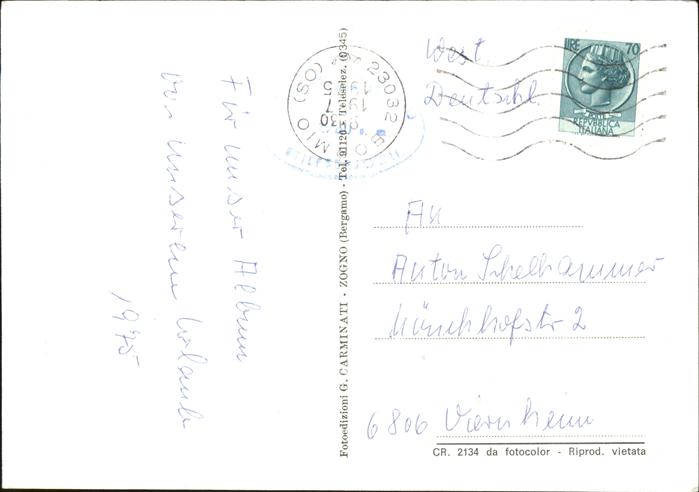 Für unser Album
von unserem Urlaub
1975
Fotoedizioni G. CARMINATI - ZOGNO (Bergamo) - Tel. 91120 - Teleselez. (0345)
23032 BORMIO (SO)
LIRE 70
REPVBBLICA
ITALIANA
West.
Deutschl.
An
Anton Schelhammer
Mönchhofstr 2
6806 Viernheim
CR. 2134 da fotocolor - Riprod. vietata